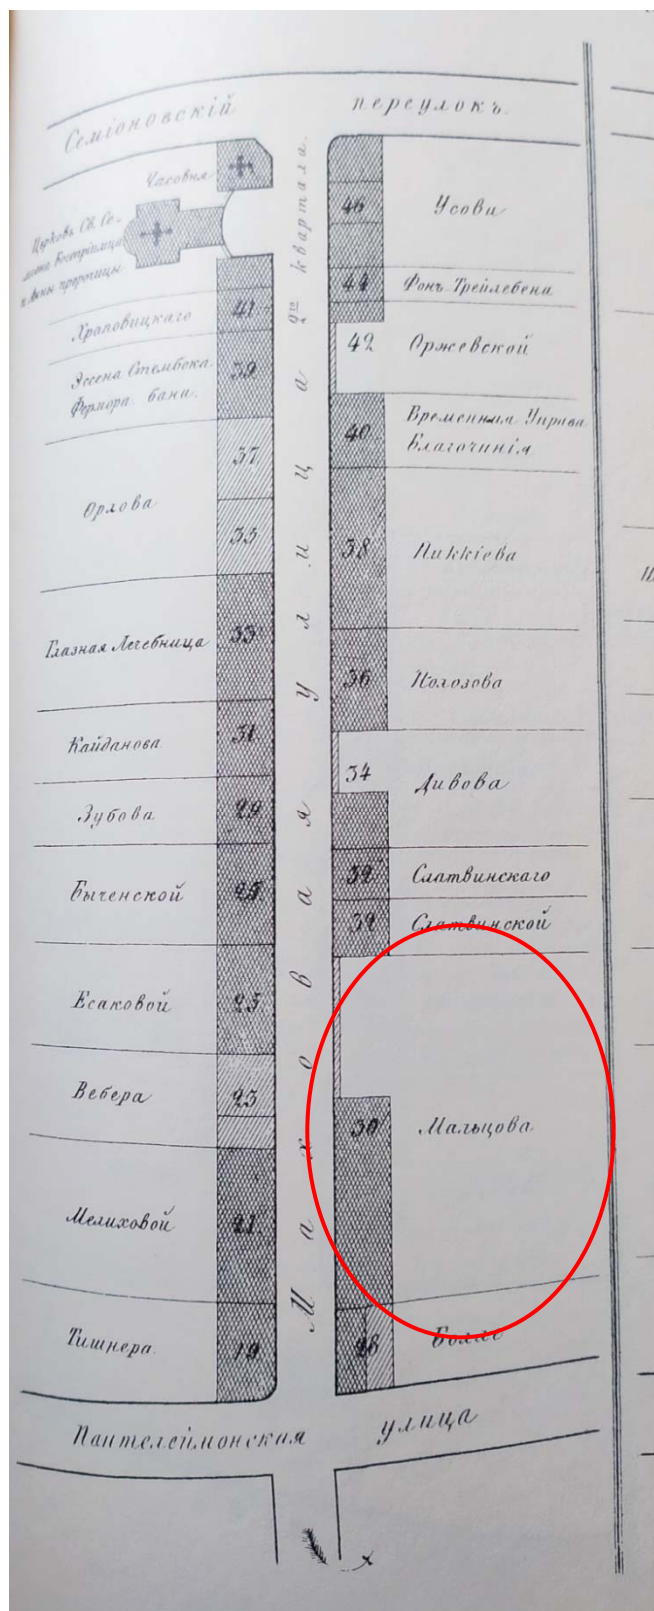 Семіоновскій переулокъ.
Часовня
Церковь Св. Се-
меона Богопріимца
и Анны пророчицы.
Храповицкаго
41
Эссена Стембока
Фермора. бани.
39
Орлова
37
35
Глазная Лечебница
33
Кайданова
31
Зубова
29
Быченской
Есаковой
25
Вебера
23
Мелиховой
21.
Тишнера.
19
Моховая улица 2го квартала.
46
Усова
44
Фонъ Трейлебена
42
Оржевской
40
Временная Управа
Благочинія
38
Пиккіева
36
Полозова
34
Дивова
32
Слатвинскаго
32
Слатвинской
30
Мальцова
28
Болле
Пантелеймонская улица